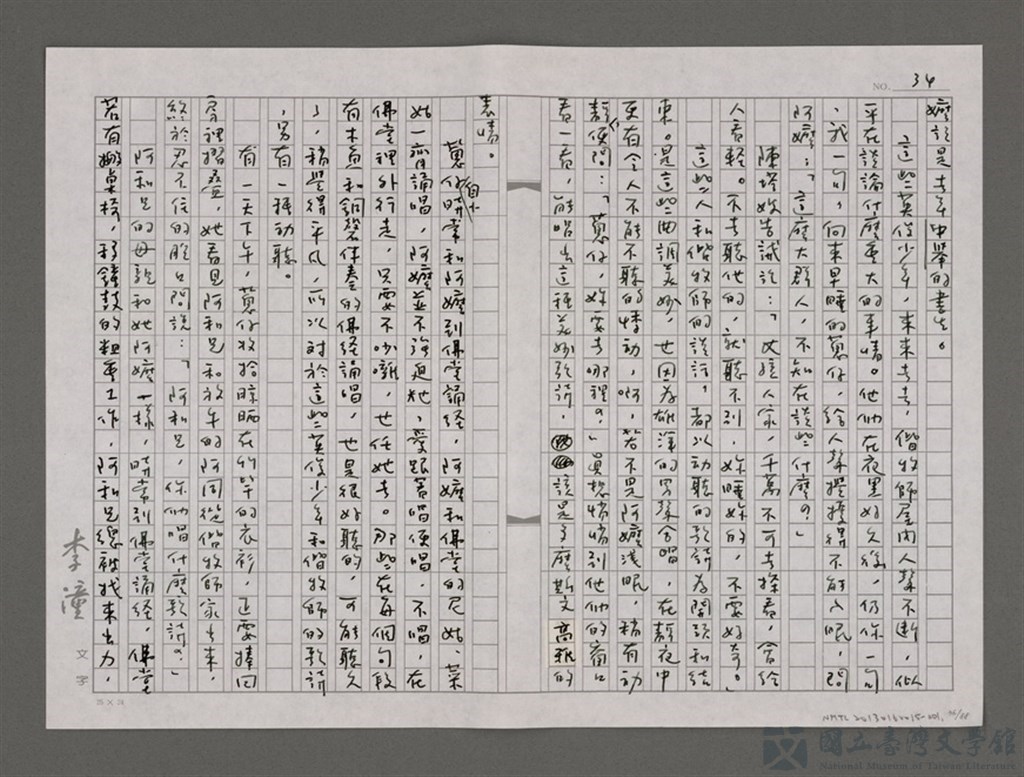 NO. 34
嬤說是去年中舉的書生。
這些英俊少年，來來去去，偕牧師屋內人聲不斷，似
乎在談論什麼重大的事情。他們在夜黑好久後，仍你一句
、我一句，向來早睡的蔥仔，給人聲攪擾得不能入眠，問
阿嬤：「這麼大群人，不知在談些什麼？」
陳塔嫂告誡說：「女孩人家，千萬不可去探看，會給
人看輕。不去聽他的，就聽不到，妳睡妳的，不要好奇。」
這些人和偕牧師的談話，都以動聽的歌詩為開頭和結
束。是這些曲調美妙，也因為雄渾的男聲合唱，在靜夜中
更有令人不能不聽的悸動，啊，若不是阿嬤淺眠，稍有動
靜便問：「蔥仔，妳要去哪裡？」真想悄悄到他們的窗口
看一看，能唱出這種美妙歌詩，該是多麼斯文高雅的
表情。
蔥仔自小時常和阿嬤到佛堂誦經，阿嬤和佛堂的尼姑、菜
姑一齊誦唱，阿嬤並不強迫她，愛跟著唱便唱，不唱，在
佛堂裡外行走，只要不吵嘴，也任她去。那些在每個句段
有木魚和銅磬伴奏的佛經誦唱，也是很好聽的，可能聽久
了，稍覺得平凡，所以對於這些英俊少年和偕牧師的歌詩
，另有一種動聽。
有一天下午，蔥仔收拾晾晒在竹竿的衣衫，正要捧回
房裡摺疊，她看見阿和兄和放牛的阿同從偕牧師家出來，
終於忍不住的脫口問說：「阿和兄，你們唱什麼歌詩？」
阿和兄的母親和她阿嬤一樣，時常到佛堂誦經，佛堂
若有搬桌椅，移鐘鼓的粗重工作，阿和兄總被找來出力，
李潼
文字
25 × 24
NMTL 20130162015-001
國立臺灣文學館
National Museum of Taiwan Literature